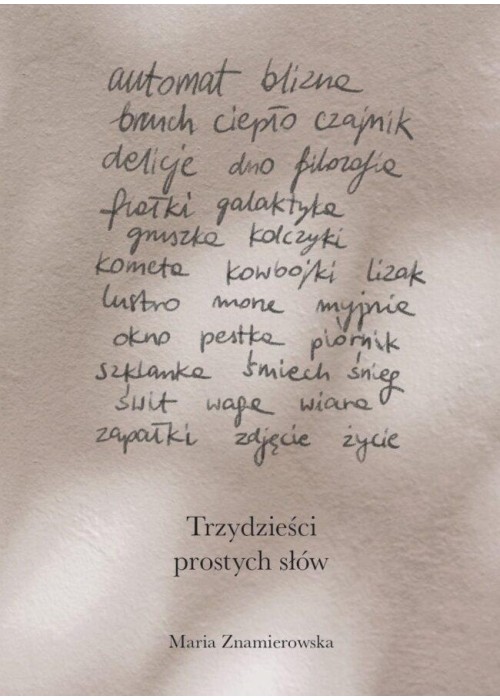 automat blizna
brzuch ciepło czajnik
delicje dno filozofia
fiołki galaktyka
gruszka kolczyki
kometa kowbojki lizak
lustro mona myjnia
okno pestka piórnik
szklanka śmiech śnieg
świt waga wiara
zapałki zdjęcie życie
Trzydzieści
prostych słów
Maria Znamierowska